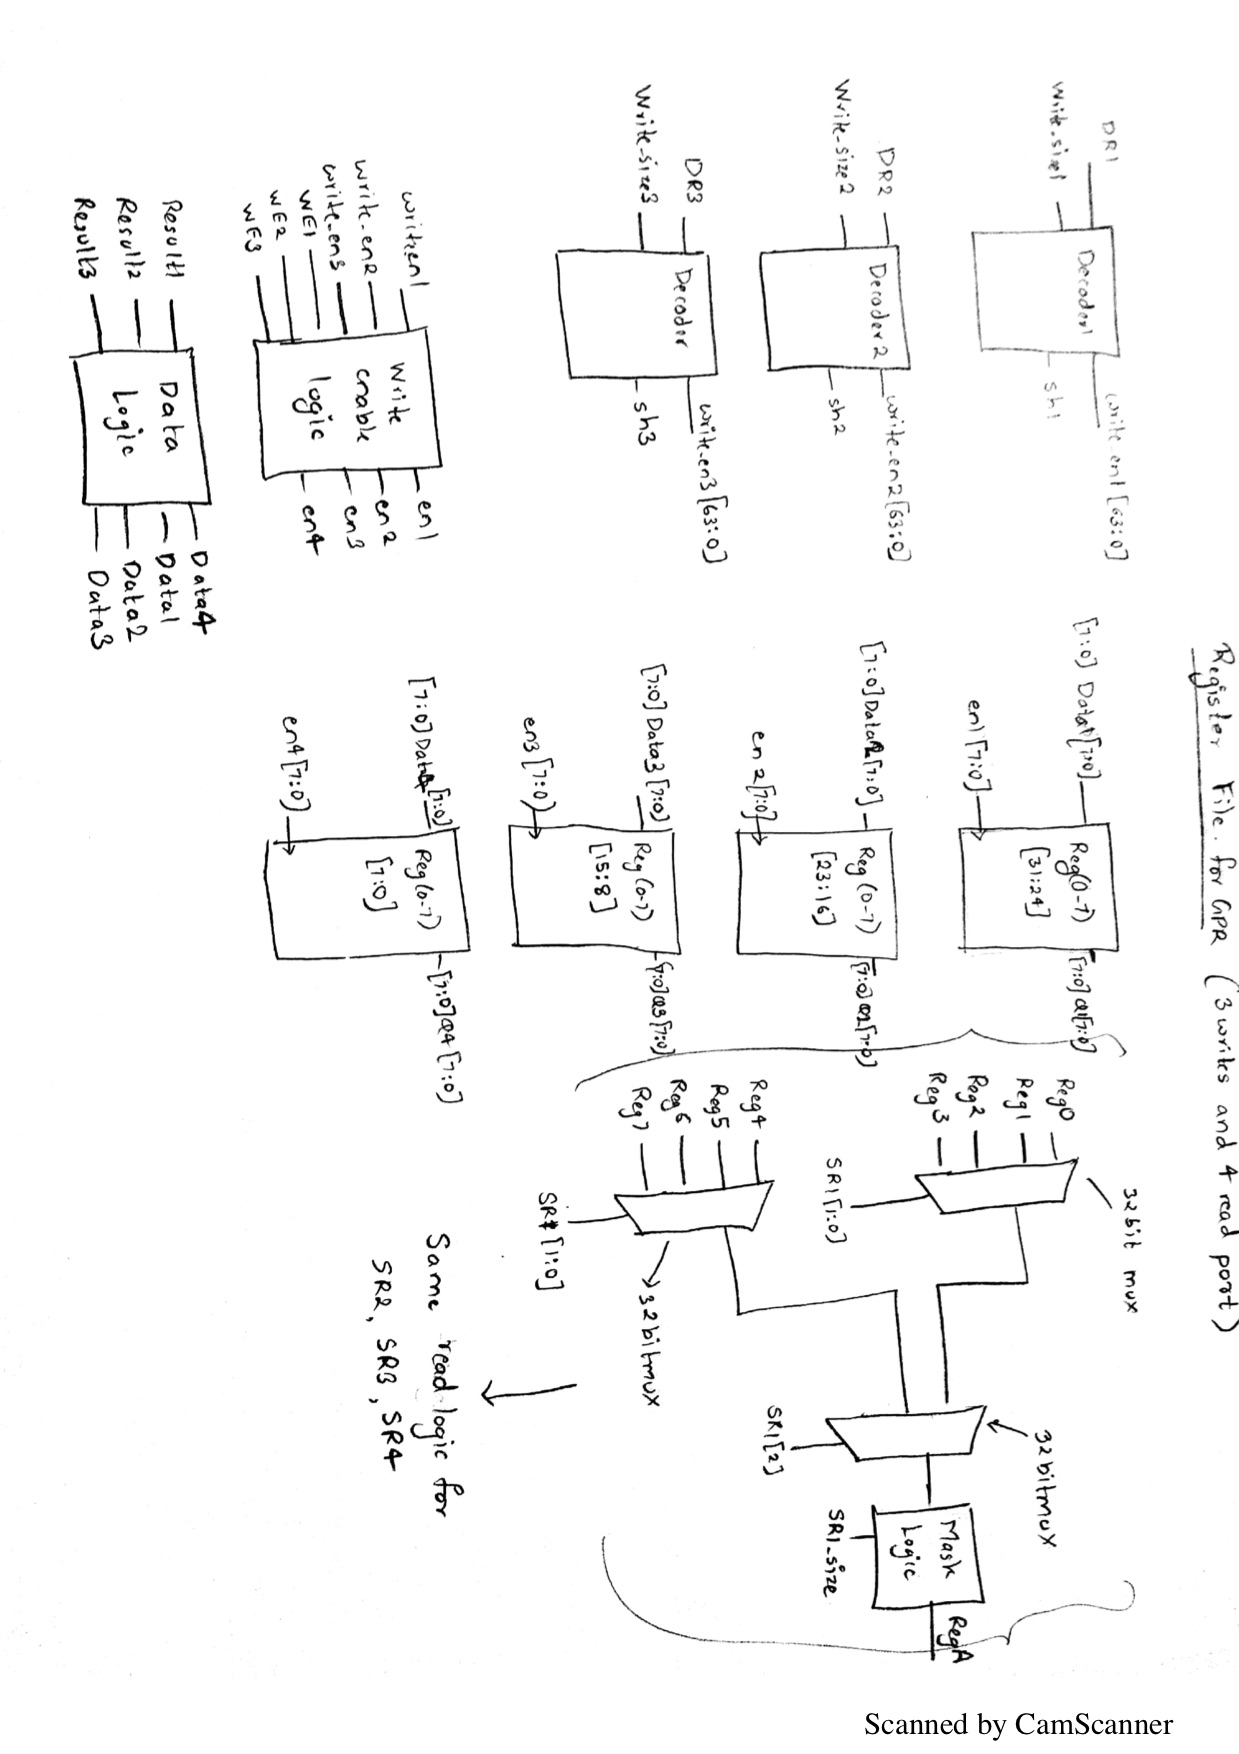 Register File for GPR (3 writes and 4 read port)
DR1
Write-size1
Decoder1
write-en1[63:0]
sh1
DR2
Write-size2
Decoder2
write-en2[63:0]
sh2
DR3
Write-size3
Decoder
write-en3[63:0]
sh3
write-en1
write-en2
write-en3
WE1
WE2
WE3
Write
enable
logic
en1
en2
en3
en4
Result1
Result2
Result3
Data
Logic
Data4
Data1
Data2
Data3
[7:0] Data1[7:0]
en1[7:0]
Reg(0-7)
[31:24]
[7:0]Q1[7:0]
[7:0]Data2[7:0]
en2[7:0]
Reg(0-7)
[23:16]
[7:0]Q2[7:0]
[7:0]Data3[7:0]
en3[7:0]
Reg(0-7)
[15:8]
[7:0]Q3[7:0]
[7:0]Data4[7:0]
en4[7:0]
Reg(0-7)
[7:0]
[7:0]Q4[7:0]
Reg0
Reg1
Reg2
Reg3
SR1[1:0]
32bit mux
Reg4
Reg5
Reg6
Reg7
SR1[1:0]
32bitmux
32bitmux
SR1[2]
Mask
Logic
SR1_size
RegA
Same read logic for
SR2, SR3, SR4
Scanned by CamScanner